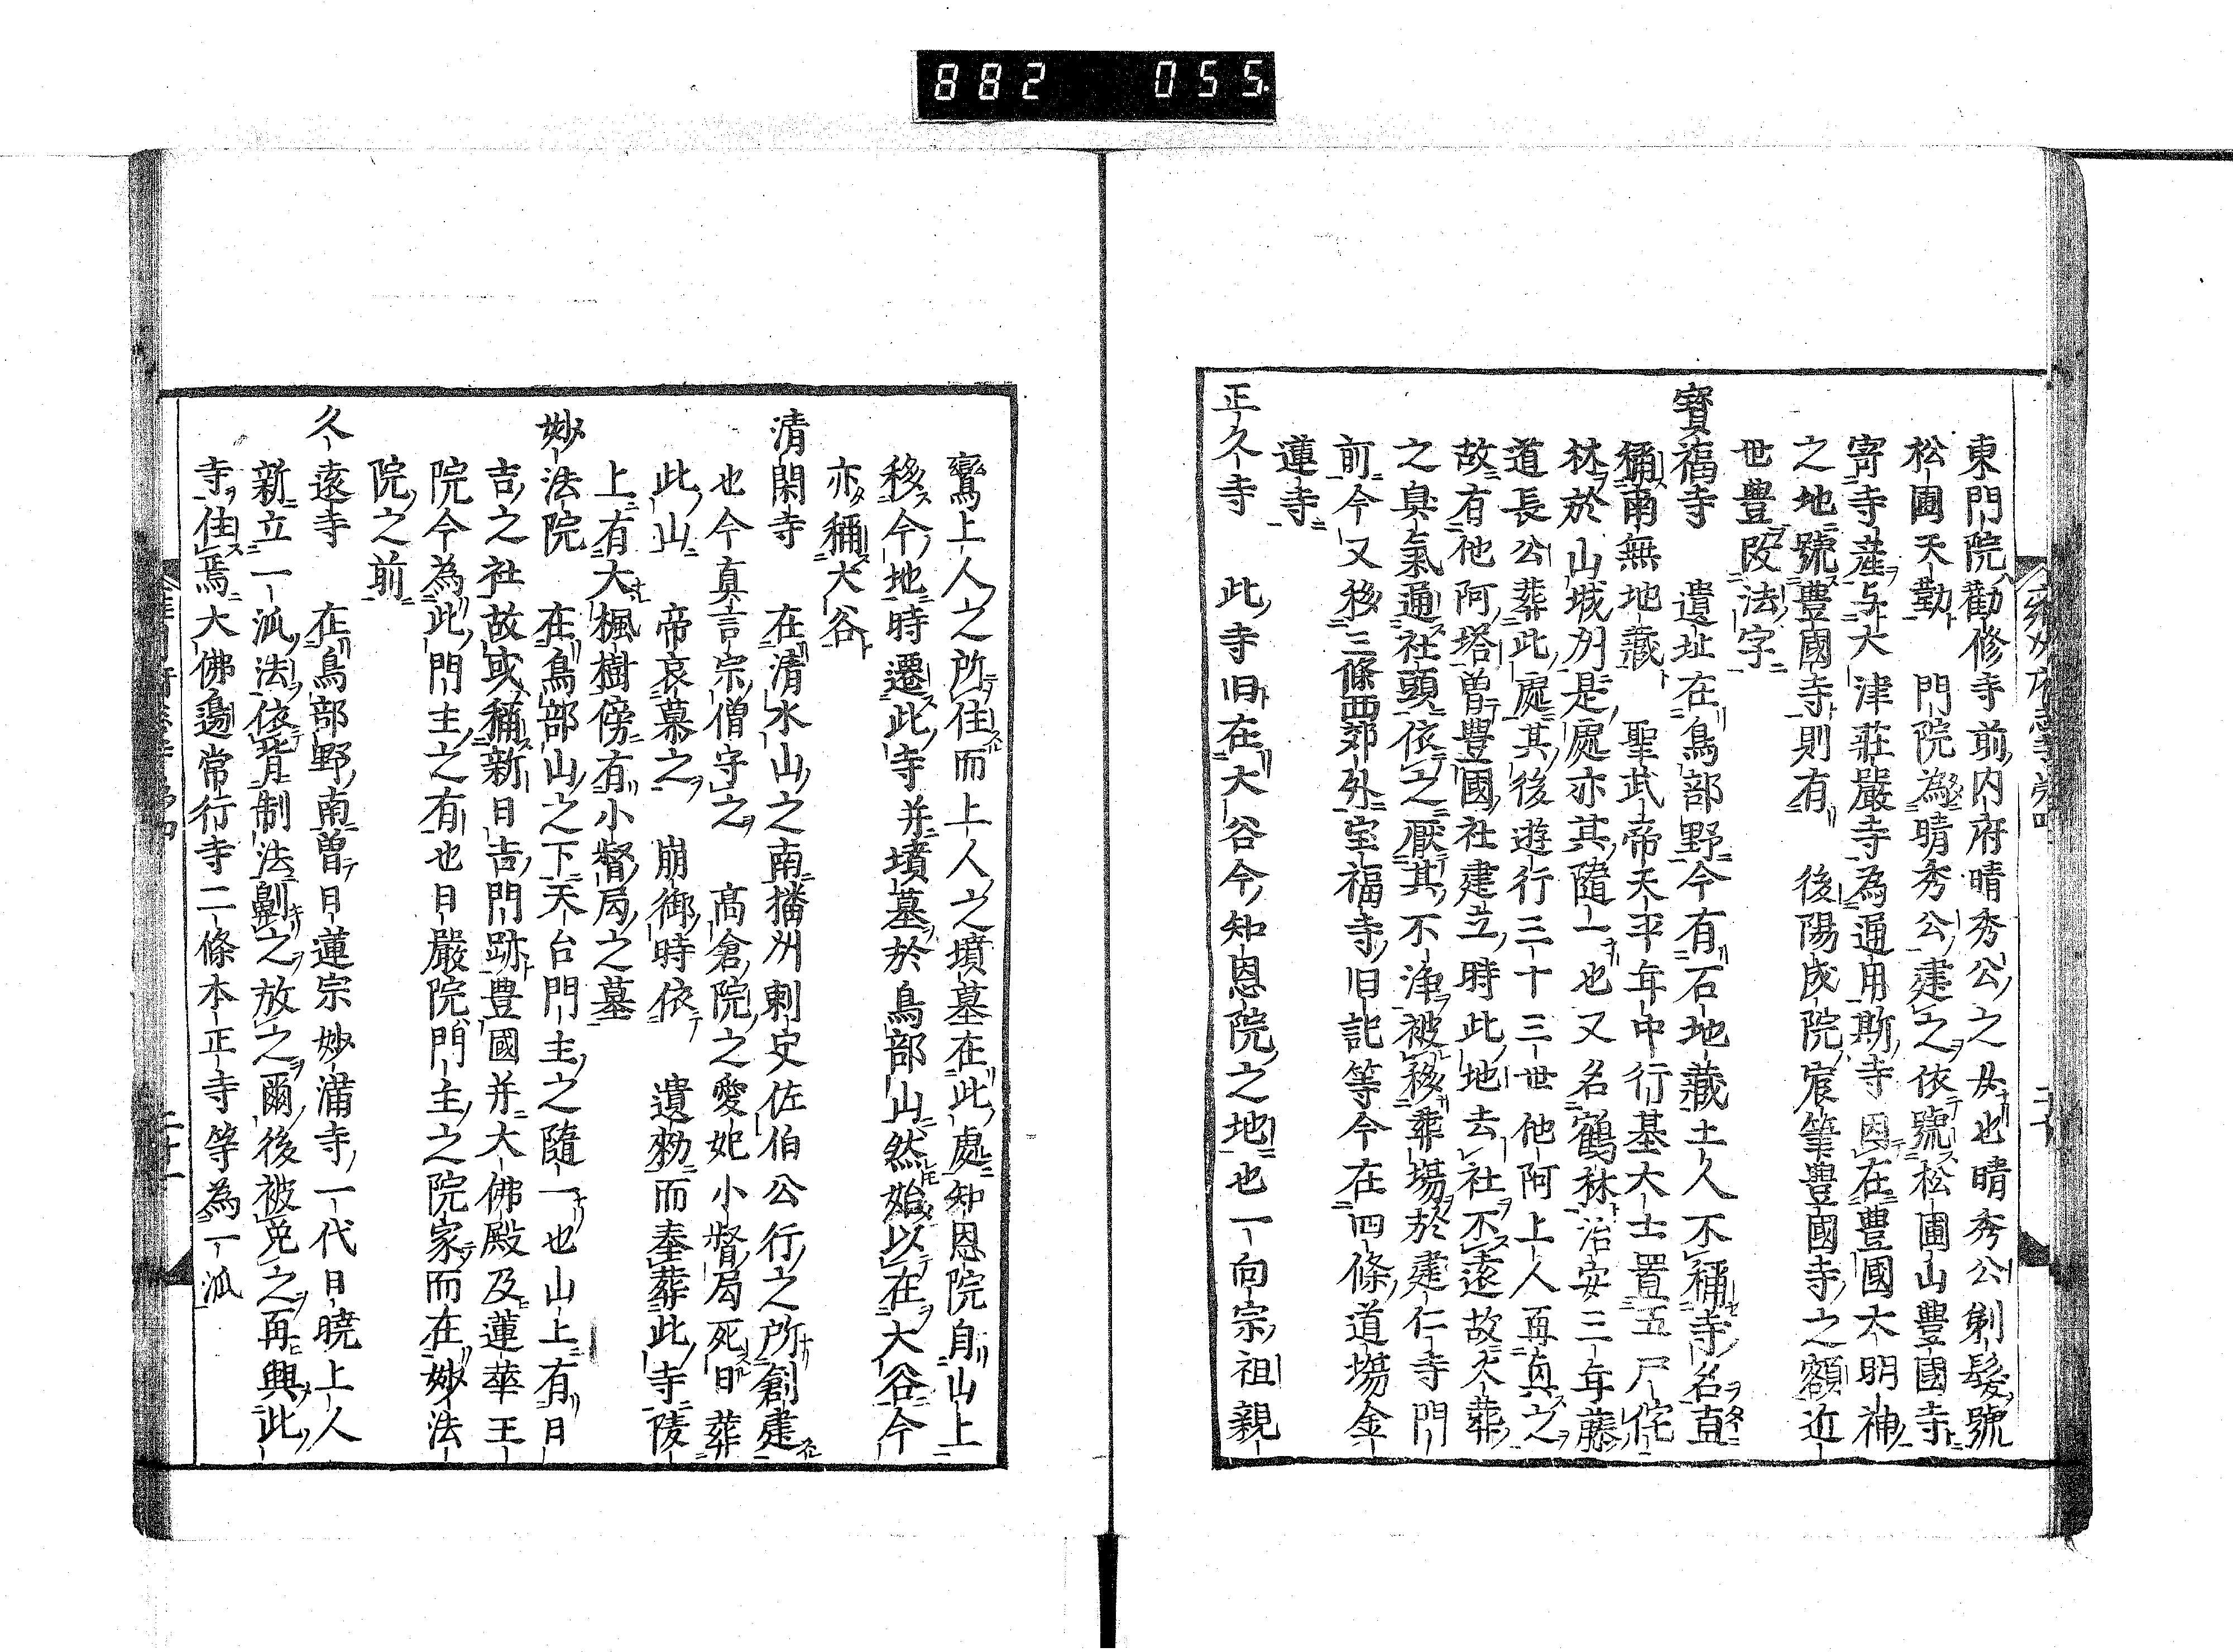 882 055
東門院勸修寺前内府晴秀公之女也晴秀公剃髮號
松圃天勤 門院為晴秀公建之依號松圃山豊國寺
寄寺産与大津莊嚴寺為通用斯寺因在豊國大明神
之地號豊國寺則有 後陽成院宸筆豊國寺之額近
世豊改法字
寶福寺 遺址在鳥部野今有石地藏土人不稱寺名直
稱南無地藏 聖武帝天平年中行基大士置五尸侘
林於山城刕是處亦其隨一也又名鶴林治安三年藤
道長公葬此處其後遊行三十三世他阿上人再真之
故有他阿塔曽豊國社建立時此地去社不遠故火葬
之臭氣通社頭依之厭其不淨被移葬場於建仁寺門
前今又移三條西郊外宝福寺旧記等今在四條道場金
蓮寺
正久寺 此寺旧在大谷今知恩院之地也一向宗祖親
鸞上人之所住而上人之墳墓在此處知恩院自山上
移今地時遷此寺并墳墓於鳥部山然始以在大谷今
亦稱大谷
清閑寺 在清水山之南播州刺史佐伯公行之所創建
也今真言宗僧守之 高倉院之愛妃小督局死日葬
此山 帝哀慕之 崩御時依 遺勅而奉葬此寺陵
上有大楓樹傍有小督局之墓
妙法院 在鳥部山之下天台門主之隨一也山上有日
吉之社故或稱新日吉門跡豊國并大佛殿及蓮華王
院今為此門主之有也日嚴院門主之院家而在妙法
院之前
久遠寺 在鳥部野南曽日蓮宗妙滿寺一代日曉上人
新立一派法依背制法劓之放之爾後被免之再興此
寺住焉大佛邊常行寺二條本正寺等為一派